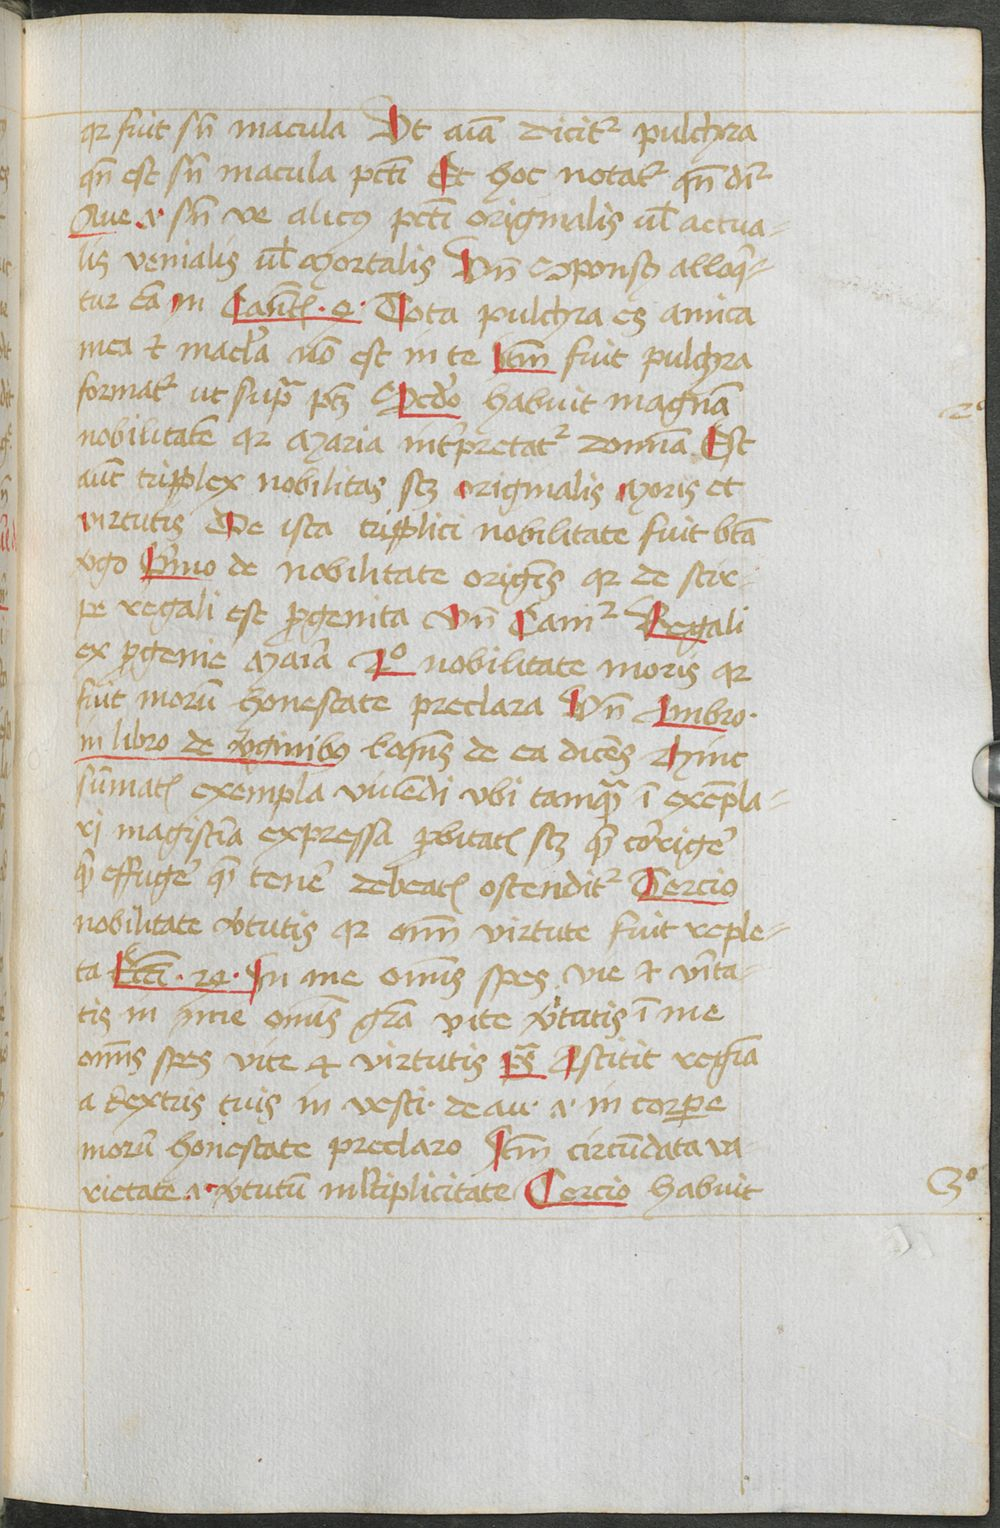 qr fuit sn̄ macula Vt aīa dicitr pulchra
qn̄ est sn̄ macula pcti Et hoc notatr qn̄ dr
Aue .i. sn̄ ve alicuiꝯ pcti originalis ul̄ actua-
lis venialis ul̄ mortalis Vn̄ sponsꝯ alloqi-
tur eā in Cantē. 4. Tota pulchra es amica
mea et macl̄a nō est in te Itm̄ fuit pulchra
formatr ut supra ptꝫ Secdo habuit magnā
2o
nobilitatē qr maria intp̄retatr domīa Est
aut̄ triplex nobilitas scꝫ originalis moris et
virtutis De ista triplici nobilitate fuit bt̄a
v̄go Primo de nobilitate origīs qr de stir-
pe regali est ꝓgenita Vn̄ Canir Regali
ex ꝓgenie maria 2o nobilitate moris qr
fuit morū honestate preclara Vn̄ Ambro.
in libro de v̄ginibꝯ loqn̄s de ea dicēs hinc
sūmatis exempla viuēdi vbi tamqȝ ī exēpla-
ri magist̄ia expressa ꝓbitatis scꝫ qd corrigē
qd effugē qd tenē debeatis ostenditr Tercio
nobilitate v̄tutis qr omī virtute fuit reple-
ta Ecci. 24. In me omīs spes vie et v̄ita-
tis in me omīs grā vite v̄tutis ī me
omīs spes vite et virtutis Ps̄ Astitit regīa
a dextris tuis in vesti. de au. .i. in corpore
morū honestate preclaro Itm̄ circūdata va-
rietate .i. v̄tutū ml̄tiplicitate Tercio habuit
3o